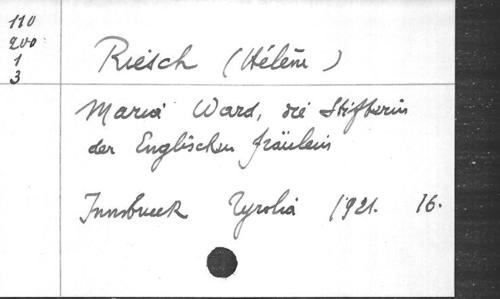 110
200
1
3
Riesch (Hélène)
Maria Ward, die Stifterin
der Englischen Fräulein
Innsbruck Tyrolia 1921. 16.